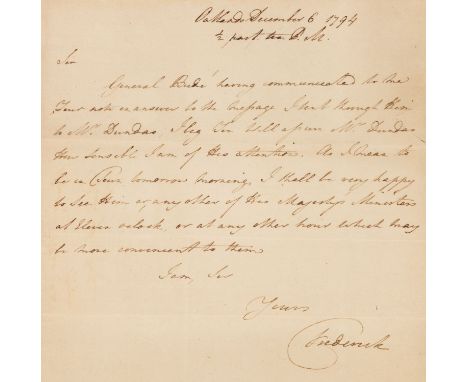 Oatlands December 6 1794
½ past ten P.M.
Sir
General Budé having communicated to me
Your note in answer to the message I sent through Him
to Mr. Dundas, I beg You will assure Mr. Dundas
How sensible I am of His attention. As I mean to
be in Town tomorrow morning, I shall be very happy
to see Him or any other of His Majesty's Ministers
at Eleven o'clock, or at any other hour which may
be more convenient to them.
I am, Sir
Yours
Frederick